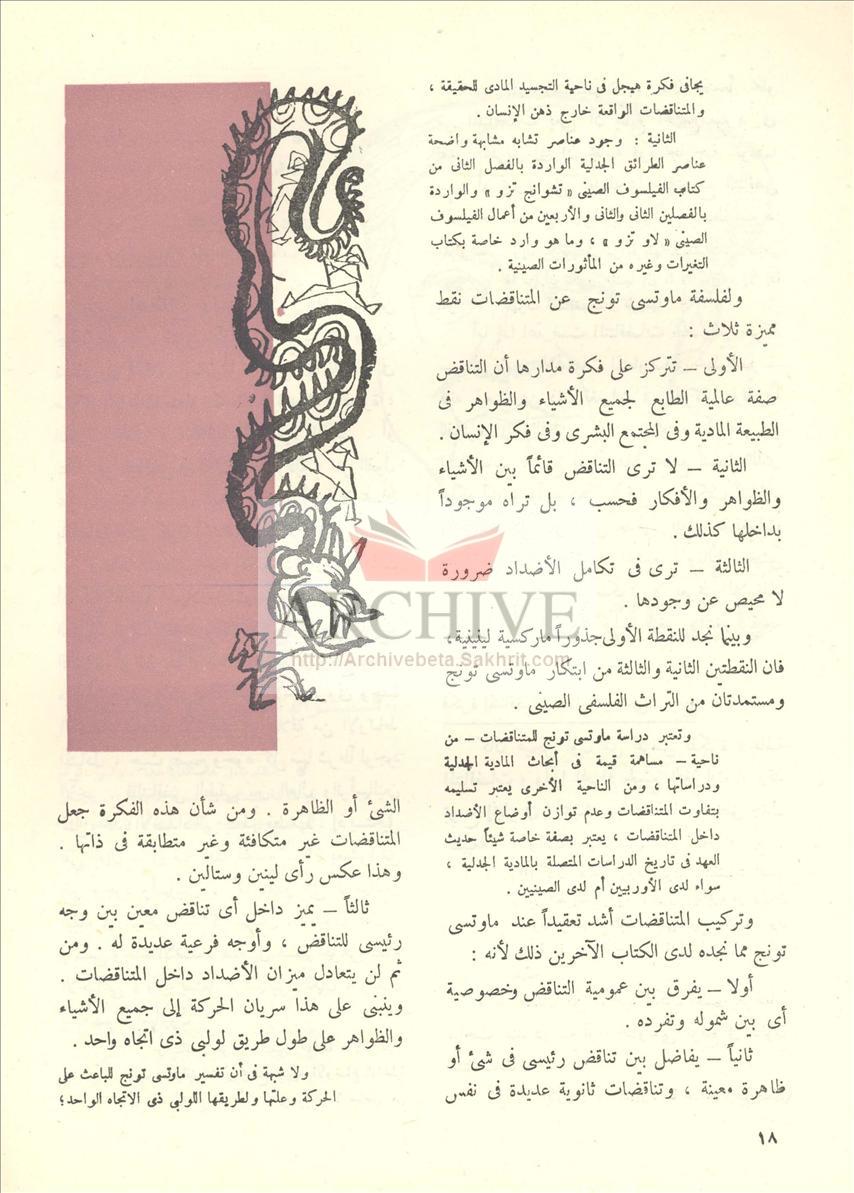 يجافى فكرة هيجل فى ناحية التجسيد المادى للحقيقة ،
والمتناقضات الواقعة خارج ذهن الإنسان .
الثانية : وجود عناصر تشابه مشابهة واضحة
عناصر الطرائق الجدلية الواردة بالفصل الثانى من
كتاب الفيلسوف الصينى « تشوانج تزو » والواردة
بالفصلين الثانى والثانى والأربعين من أعمال الفيلسوف
الصينى « لاو تزو » ، وما هو وارد خاصة بكتاب
التغيرات وغيره من المأثورات الصينية .
ولفلسفة ماوتسى تونج عن المتناقضات نقط
مميزة ثلاث :
الأولى – تتركز على فكرة مدارها أن التناقض
صفة عالمية الطابع لجميع الأشياء والظواهر فى
الطبيعة المادية وفى المجتمع البشرى وفى فكر الإنسان .
الثانية – لا ترى التناقض قائماً بين الأشياء
والظواهر والأفكار فحسب ، بل تراه موجوداً
بداخلها كذلك .
الثالثة – ترى فى تكامل الأضداد ضرورة
لا محيص عن وجودها .
وبينما نجد للنقطة الأولى جذوراً ماركسية لينينية،
فان النقطتين الثانية والثالثة من ابتكار ماوتسى تونج
ومستمدتان من التراث الفلسفى الصينى .
وتعتبر دراسة ماوتسى تونج للمتناقضات – من
ناحية – مساهمة قيمة فى أبحاث المادية الجدلية
ودراساتها ، ومن الناحية الأخرى يعتبر تسليمه
بتفاوت المتناقضات وعدم توازن أوضاع الأضداد
داخل المتناقضات ، يعتبر بصفة خاصة شيئاً حديث
العهد فى تاريخ الدراسات المتصلة بالمادية الجدلية ،
سواء لدى الأوربيين أم لدى الصينيين .
وتركيب المتناقضات أشد تعقيداً عند ماوتسى
تونج مما نجده لدى الكتاب الآخرين ذلك لأنه :
أولا – يفرق بين عمومية التناقض وخصوصية
أى بين شموله وتفرده .
ثانياً – يفاضل بين تناقض رئيسى فى شئ أو
ظاهرة معينة ، وتناقضات ثانوية عديدة فى نفس
الشئ أو الظاهرة . ومن شأن هذه الفكرة جعل
المتناقضات غير متكافئة وغير متطابقة فى ذاتها .
وهذا عكس رأى لينين وستالين .
ثالثاً – يميز داخل أى تناقض معين بين وجه
رئيسى للتناقض ، وأوجه فرعية عديدة له . ومن
ثم لن يتعادل ميزان الأضداد داخل المتناقضات .
وينبنى على هذا سريان الحركة إلى جميع الأشياء
والظواهر على طول طريق لولبى ذى اتجاه واحد .
ولا شبهة فى أن تفسير ماوتسى تونج للباعث على
الحركة وعلتها ولطريقها اللولبى ذى الاتجاه الواحد؛
١٨
ARCHIVE
http://Archivebeta.Sakhrit.com